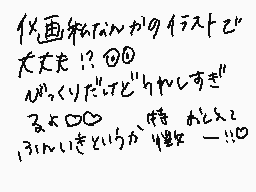 仪画私なんかのイラストで
大丈夫!?
びっくりだけどうれしすぎ
るよ♡♡ 特 おしえて
ふんいきというか 一!!♡